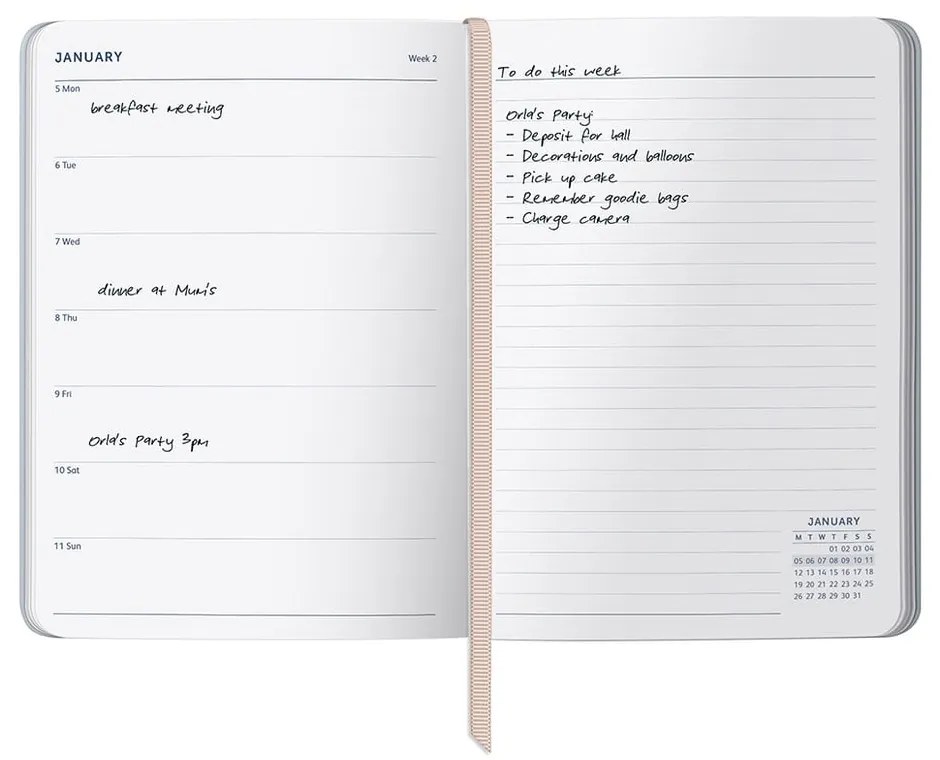 JANUARY
Week 2
5 Mon
breakfast meeting
6 Tue
7 Wed
dinner at Mum's
8 Thu
9 Fri
Orla's Party 3pm
10 Sat
11 Sun
To do this week
Orla's Party:
- Deposit for hall
- Decorations and balloons
- Pick up cake
- Remember goodie bags
- Charge camera
JANUARY
M T W T F S S
01 02 03 04
05 06 07 08 09 10 11
12 13 14 15 16 17 18
19 20 21 22 23 24 25
26 27 28 29 30 31